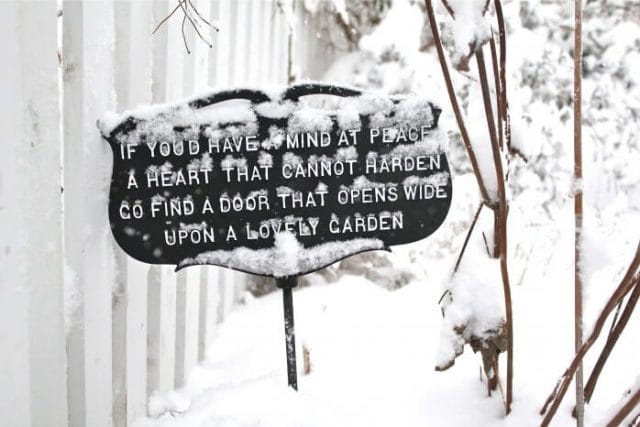 IF YOU'D HAVE A MIND AT PEACE
A HEART THAT CANNOT HARDEN
GO FIND A DOOR THAT OPENS WIDE
UPON A LOVELY GARDEN